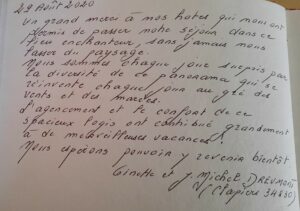 29 Août 2020
un grand merci à nos hotes qui nous ont
permis de passer notre séjour dans ce
lieu enchanteur, sans jamais nous
lasser du paysage.
Nous sommes chaque jour surpris par
la diversité de ce panorama qui se
réinvente chaque jour au gré des
vents et des marées.
L'agencement et le confort de ce
spacieux logis ont contribué grandement
à de merveilleuses vacances !
Nous espérons pouvoir y revenir bientôt
Ginette et J. Michel DREUMONT
(Clapiers 34830)